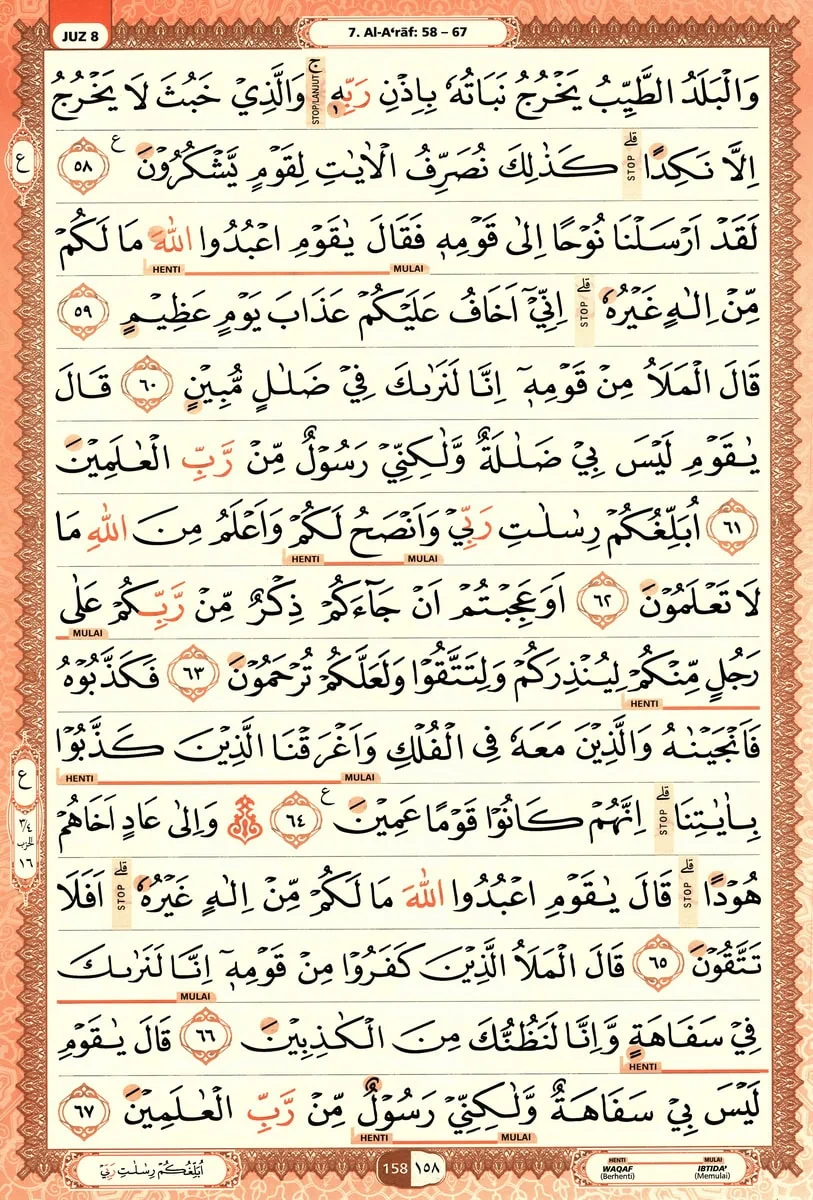 JUZ 8
7. Al-A‘rāf: 58 – 67
وَالْبَلَدُ الطَّيِّبُ يَخْرُجُ نَبَاتُهٗ بِاِذْنِ رَبِّهٖۚ STOP/LANJUT وَالَّذِيْ خَبُثَ لَا يَخْرُجُ
اِلَّا نَكِدًاۗ STOP كَذٰلِكَ نُصَرِّفُ الْاٰيٰتِ لِقَوْمٍ يَّشْكُرُوْنَ ࣖ ٥٨
ع
لَقَدْ اَرْسَلْنَا نُوْحًا اِلٰى قَوْمِهٖ فَقَالَ يٰقَوْمِ اعْبُدُوا اللّٰهَ مَا لَكُمْ
HENTI MULAI
مِّنْ اِلٰهٍ غَيْرُهٗۗ STOP اِنِّيْٓ اَخَافُ عَلَيْكُمْ عَذَابَ يَوْمٍ عَظِيْمٍ ٥٩
قَالَ الْمَلَاُ مِنْ قَوْمِهٖٓ اِنَّا لَنَرٰىكَ فِيْ ضَلٰلٍ مُّبِيْنٍ ٦٠ قَالَ
يٰقَوْمِ لَيْسَ بِيْ ضَلٰلَةٌ وَّلٰكِنِّيْ رَسُوْلٌ مِّنْ رَّبِّ الْعٰلَمِيْنَ
٦١ اُبَلِّغُكُمْ رِسٰلٰتِ رَبِّيْ وَاَنْصَحُ لَكُمْ وَاَعْلَمُ مِنَ اللّٰهِ مَا
HENTI MULAI
لَا تَعْلَمُوْنَ ٦٢ اَوَعَجِبْتُمْ اَنْ جَاۤءَكُمْ ذِكْرٌ مِّنْ رَّبِّكُمْ عَلٰى
MULAI
رَجُلٍ مِّنْكُمْ لِيُنْذِرَكُمْ وَلِتَتَّقُوْا وَلَعَلَّكُمْ تُرْحَمُوْنَ ٦٣ فَكَذَّبُوْهُ
HENTI
فَاَنْجَيْنٰهُ وَالَّذِيْنَ مَعَهٗ فِى الْفُلْكِ وَاَغْرَقْنَا الَّذِيْنَ كَذَّبُوْا
HENTI MULAI
ع
بِاٰيٰتِنَاۗ STOP اِنَّهُمْ كَانُوْا قَوْمًا عَمِيْنَ ࣖ ٦٤ ۞ وَاِلٰى عَادٍ اَخَاهُمْ
٣/٤
الحزب
١٦
هُوْدًاۗ STOP قَالَ يٰقَوْمِ اعْبُدُوا اللّٰهَ مَا لَكُمْ مِّنْ اِلٰهٍ غَيْرُهٗۗ STOP اَفَلَا
تَتَّقُوْنَ ٦٥ قَالَ الْمَلَاُ الَّذِيْنَ كَفَرُوْا مِنْ قَوْمِهٖٓ اِنَّا لَنَرٰىكَ
MULAI
فِيْ سَفَاهَةٍ وَّاِنَّا لَنَظُنُّكَ مِنَ الْكٰذِبِيْنَ ٦٦ قَالَ يٰقَوْمِ
HENTI
لَيْسَ بِيْ سَفَاهَةٌ وَّلٰكِنِّيْ رَسُوْلٌ مِّنْ رَّبِّ الْعٰلَمِيْنَ ٦٧
HENTI MULAI
اُبَلِّغُكُمْ رِسٰلٰتِ رَبِّيْ
158 ١٥٨
HENTI MULAI
WAQAF IBTIDA'
(Berhenti) (Memulai)